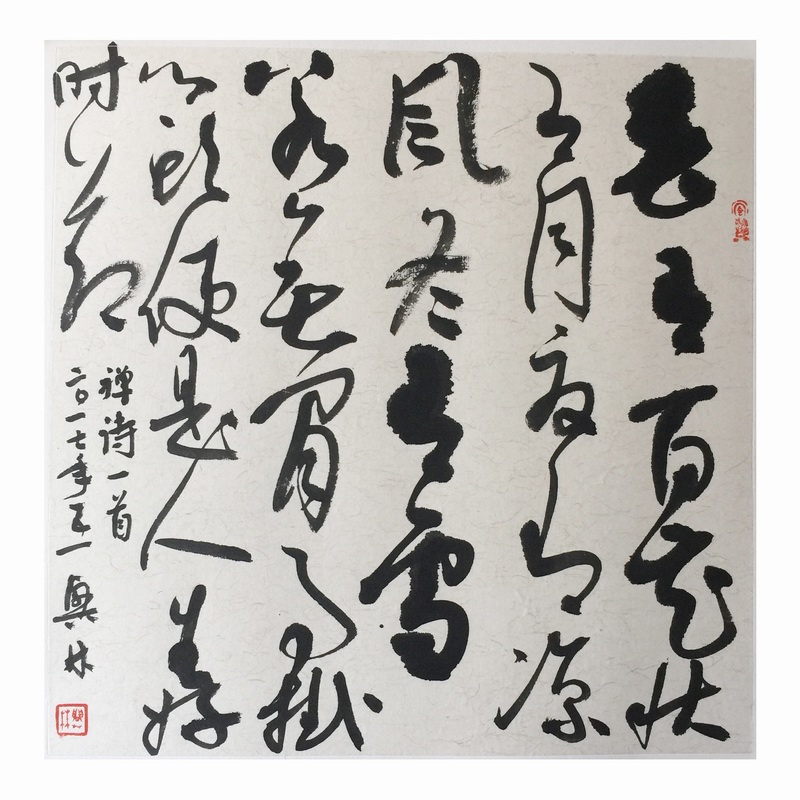 春有百花秋
有月夏有凉
风冬有雪
若无闲事掛
心头便是人生好
时节
禅诗一首
二〇一七年五一 興林